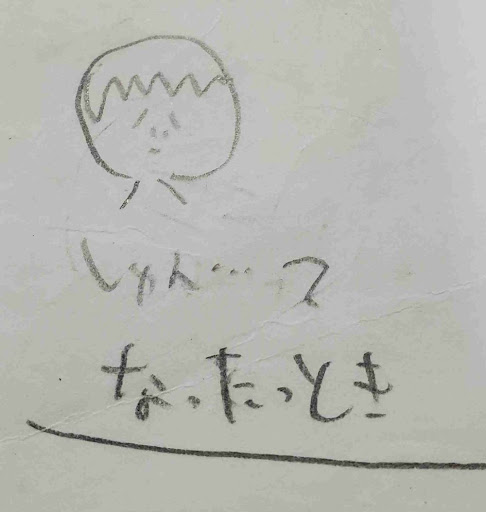 しゅん…って
なったとき